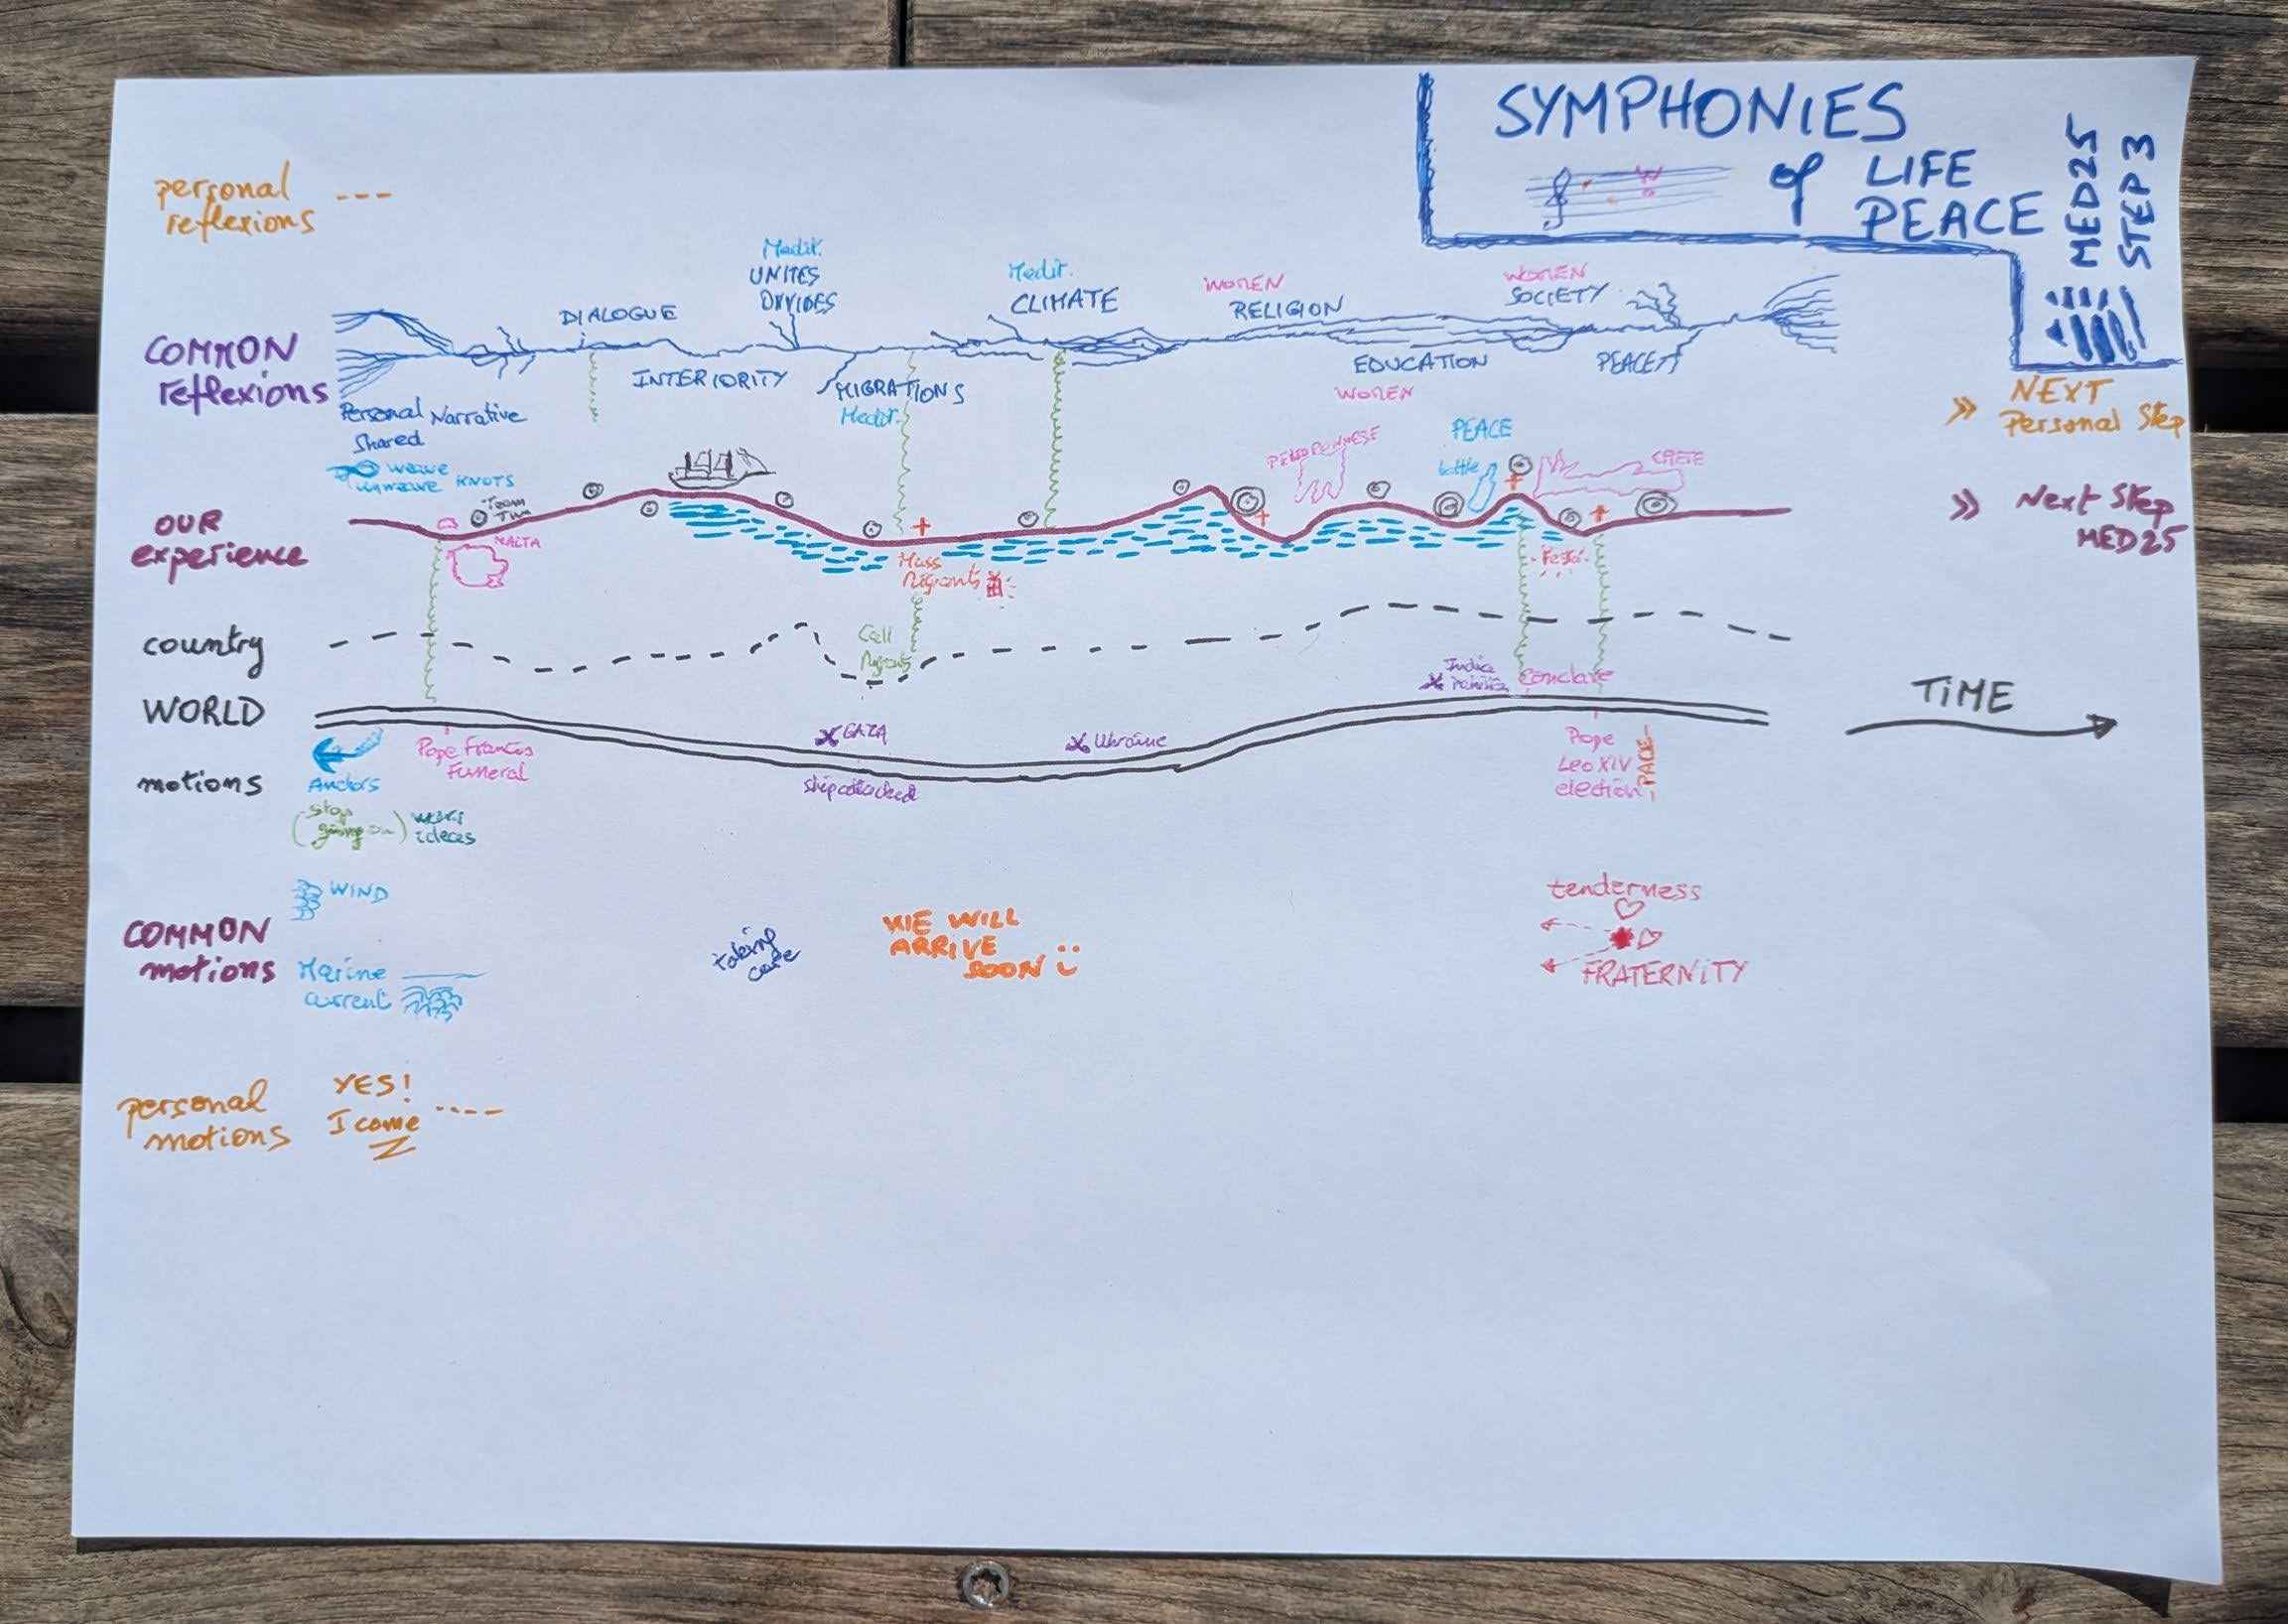 SYMPHONIES
of LIFE
PEACE
MED25
STEP 3
personal ---
reflexions
Medit.
UNITES
DIVIDES
Medit.
CLIMATE
WOMEN
RELIGION
WOMEN
SOCIETY
DIALOGUE
COMMON
reflexions
INTERIORITY
MIGRATIONS
Medit.
EDUCATION
WOMEN
PEACE
NEXT
Personal Step
Personal Narrative
Shared
weave
unweave KNOTS
PELOPONNESE
PEACE
bottle
CRETE
OUR
experience
Team
Time
MALTA
Mass
Migrants
Next Step
MED25
country
Call
Migrants
India
Conclave
WORLD
GAZA
Ukraine
TIME
Pope Francis
Funeral
ship attacked
Pope
Leo XIV
election
PACE
motions
Anchors
(stop
going on)
ideas
WIND
COMMON
motions
Marine
current
taking
care
WE WILL
ARRIVE
SOON
tenderness
FRATERNITY
personal
motions
YES!
I come ----